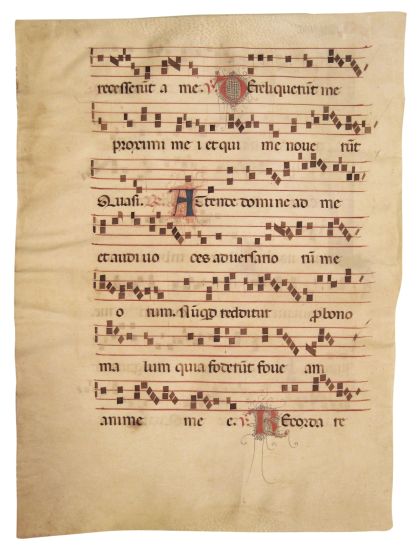 recesserūt a me. ℣. Dereliquerūt me
proximi me i et qui me noue rūt
Quasi. ℟. Atende domine ad me
et audi uo ces aduersario rū me
o rum. Nūqd redditur pro bono
ma lum quia foderūt foue am
anime me e. ℣. Recorda re